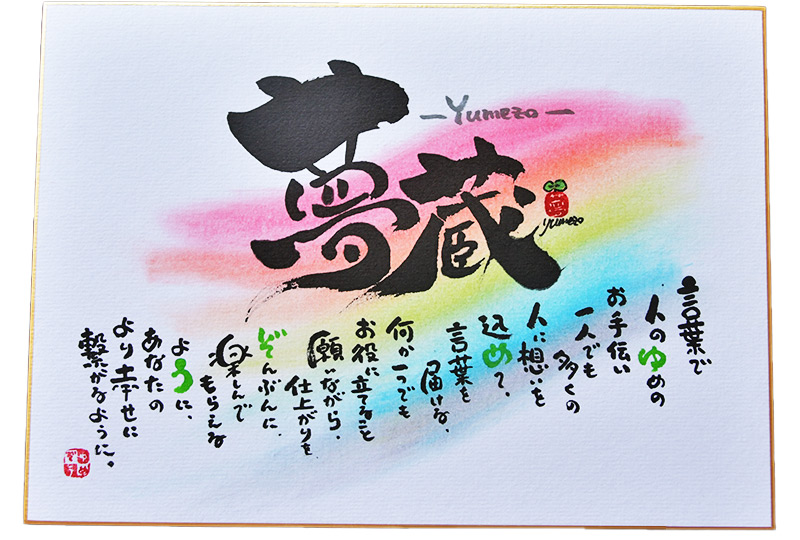 夢蔵
-Yumezo-
夢
yumezo
言葉で
人のゆめの
お手伝い
一人でも
多くの
人に想いを
込めて、
言葉を
届ける、
何か一つでも
お役に立てること
願いながら、
仕上がりを
ぞんぶんに、
楽しんで
もらえる
ように、
あなたの
より幸せに
繋がるように。
ゆめ
ぞう